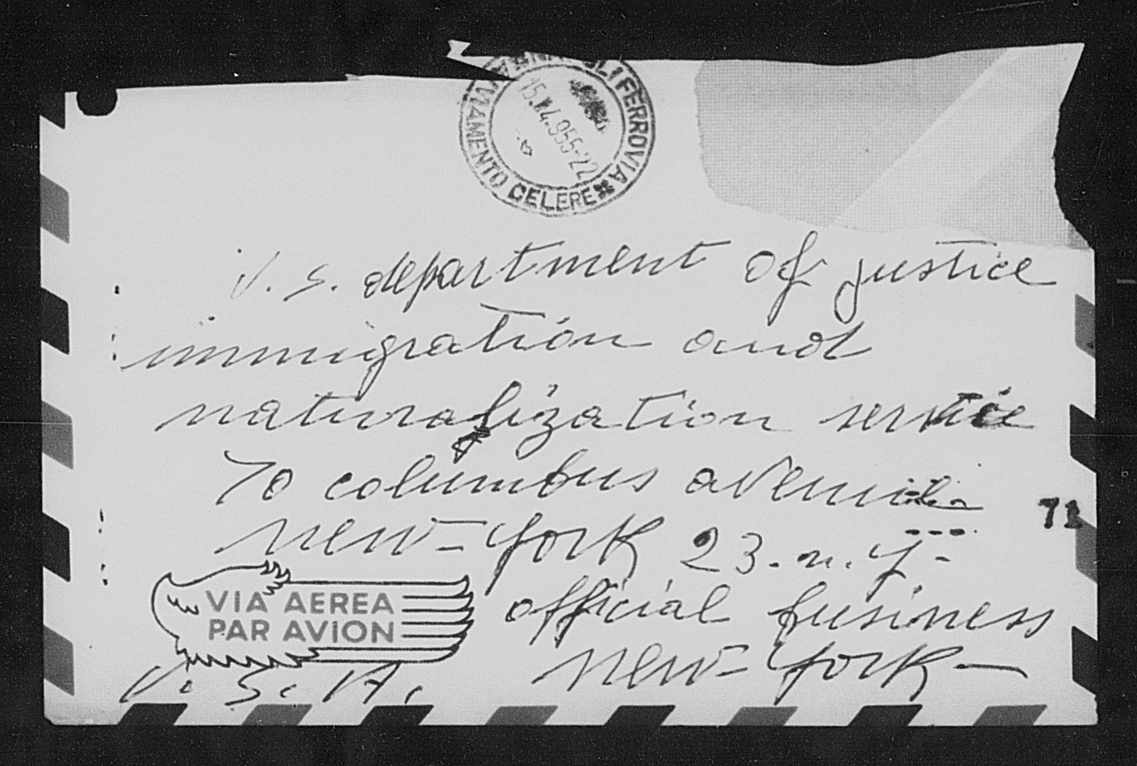 NAPOLI FERROVIA
AVVIAMENTO CELERE
15.4.955-22
U. S. department of justice
immigration and
naturalization service
70 columbus avenue
71
new-york 23. n. y-
VIA AEREA
PAR AVION
official business
U. S. A.
new-york-